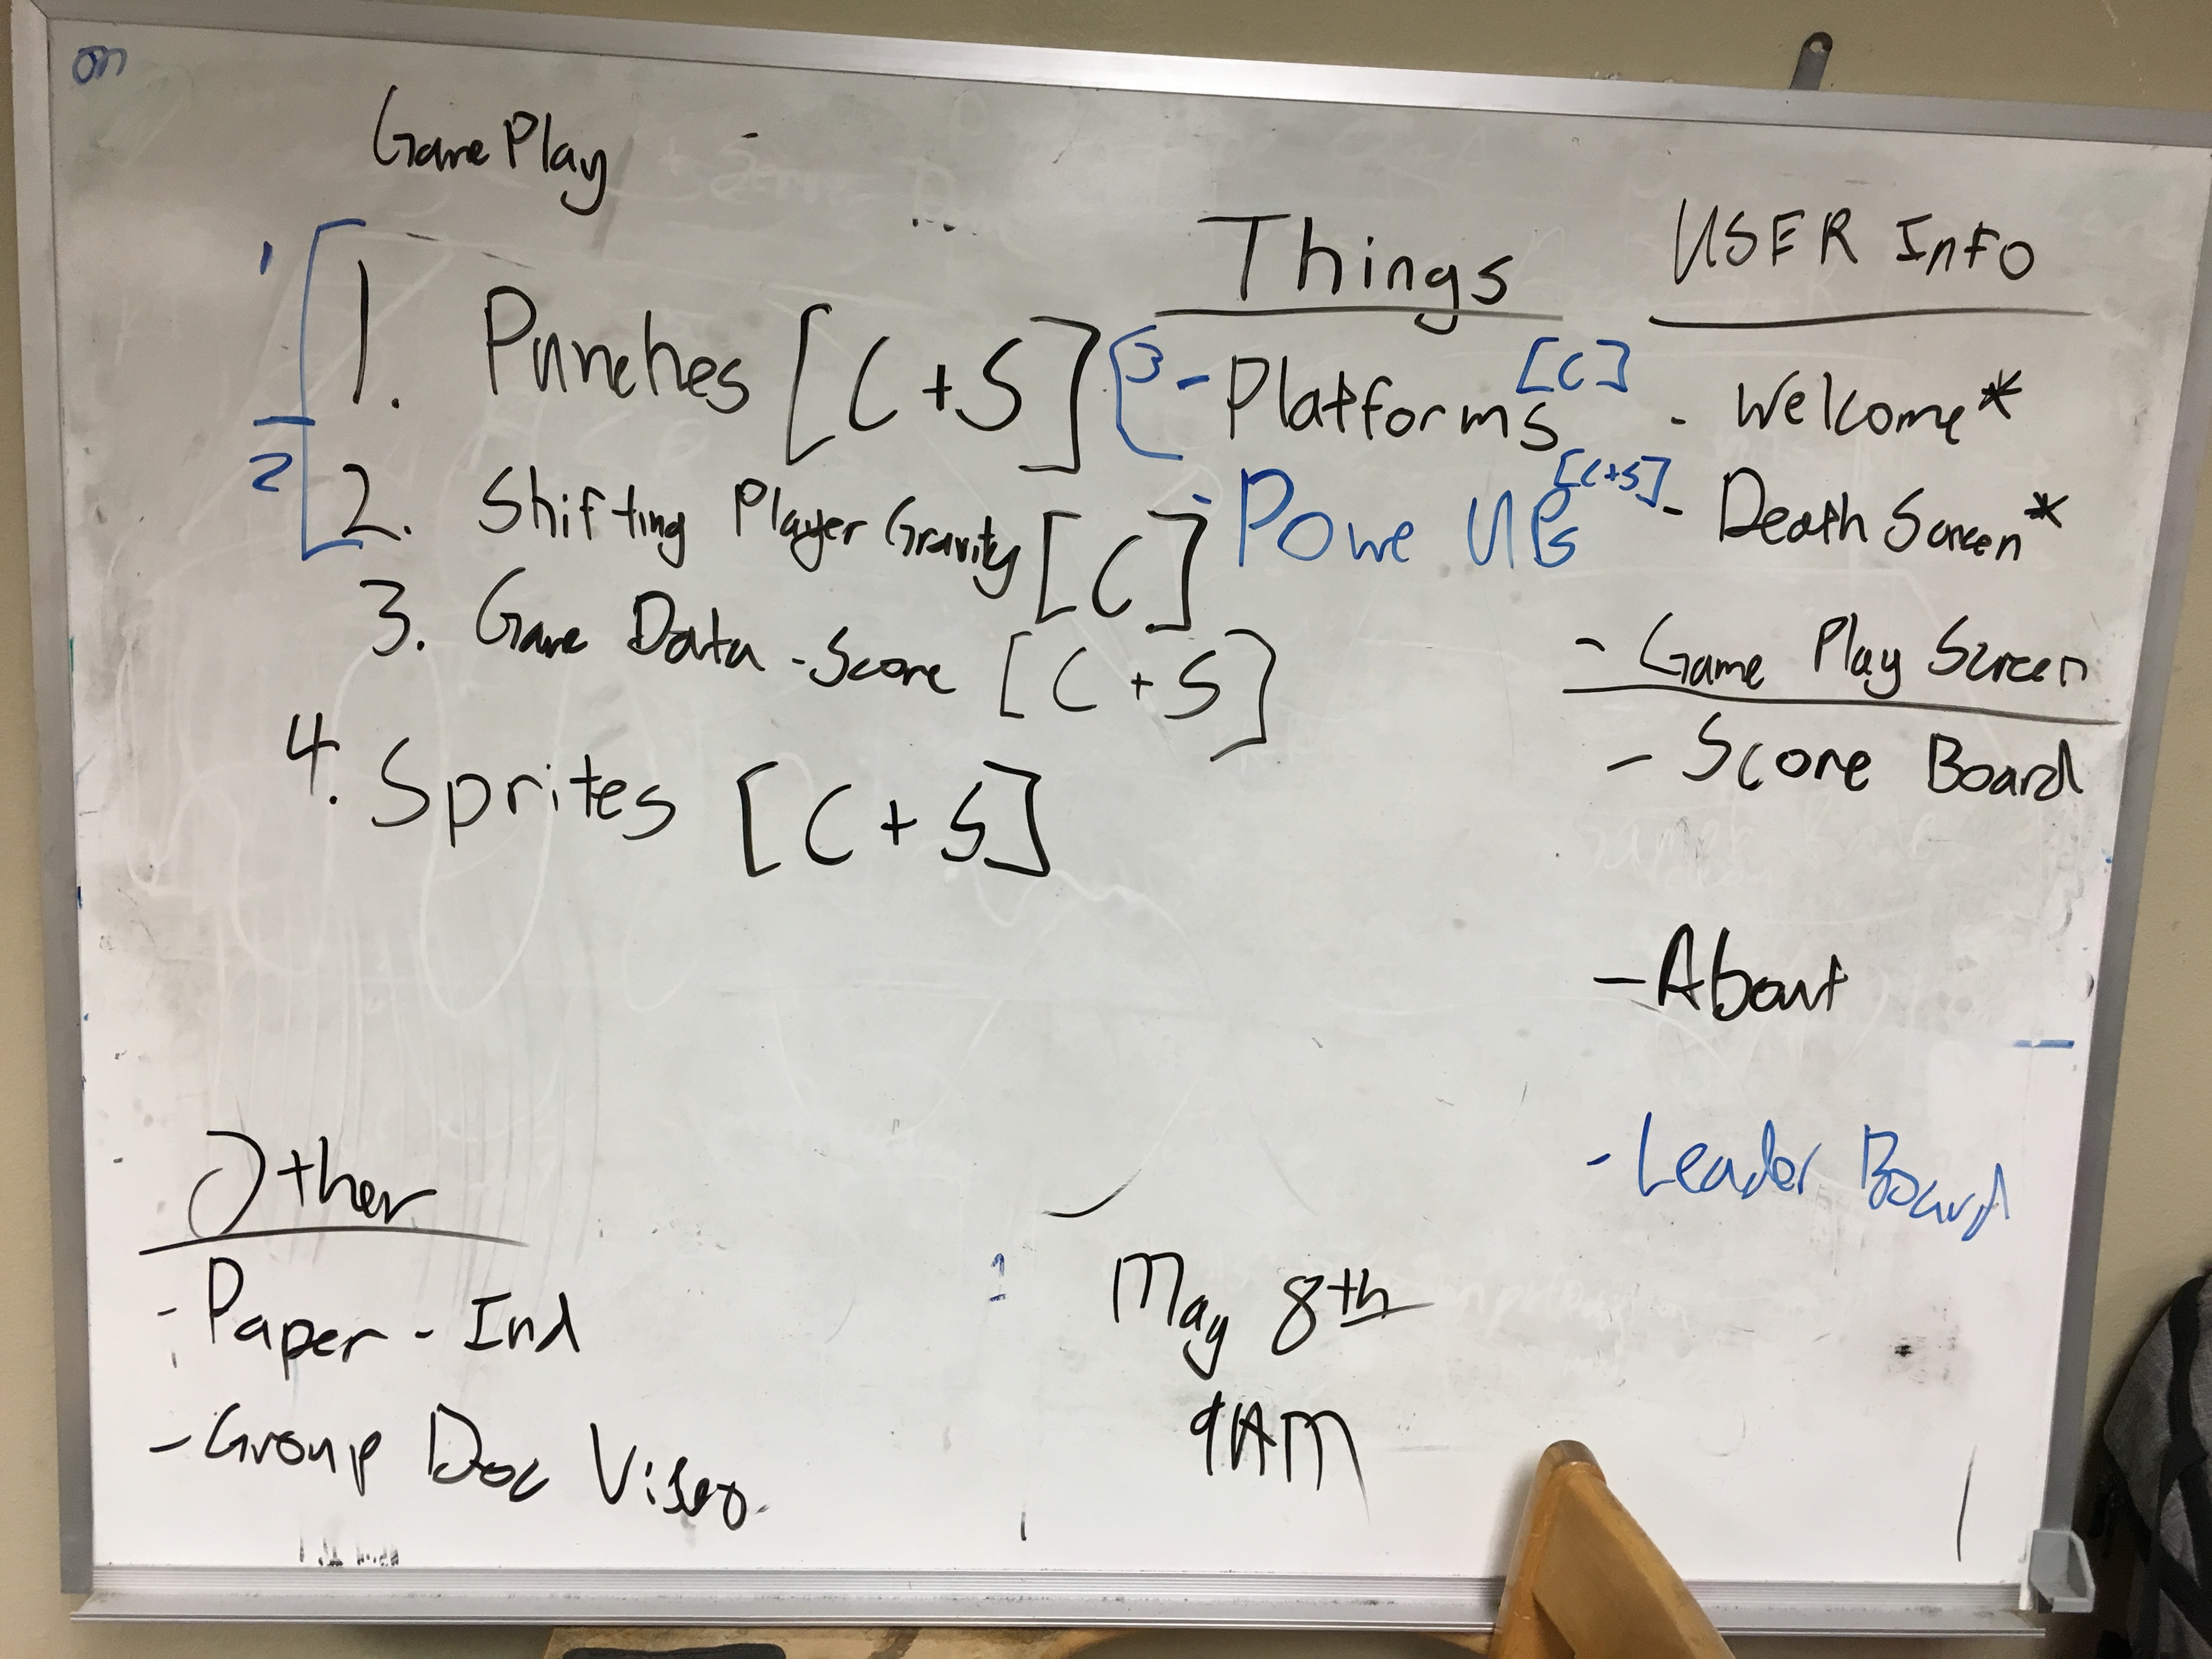 on
GamePlay
1
2
1. Punches [C+S]
2. Shifting Player Gravity [C]
3. Game Data - Score [C+S]
4. Sprites [C+S]
Things
3 - Platforms [C]
- Powe UPs [C+S]
USER InFo
- Welcome*
- Death Screen*
- Game Play Screen
- Score Board
- About
- Leader Board
Other
- Paper - Ind
- Group Doc Video.
1
May 8th
9AM